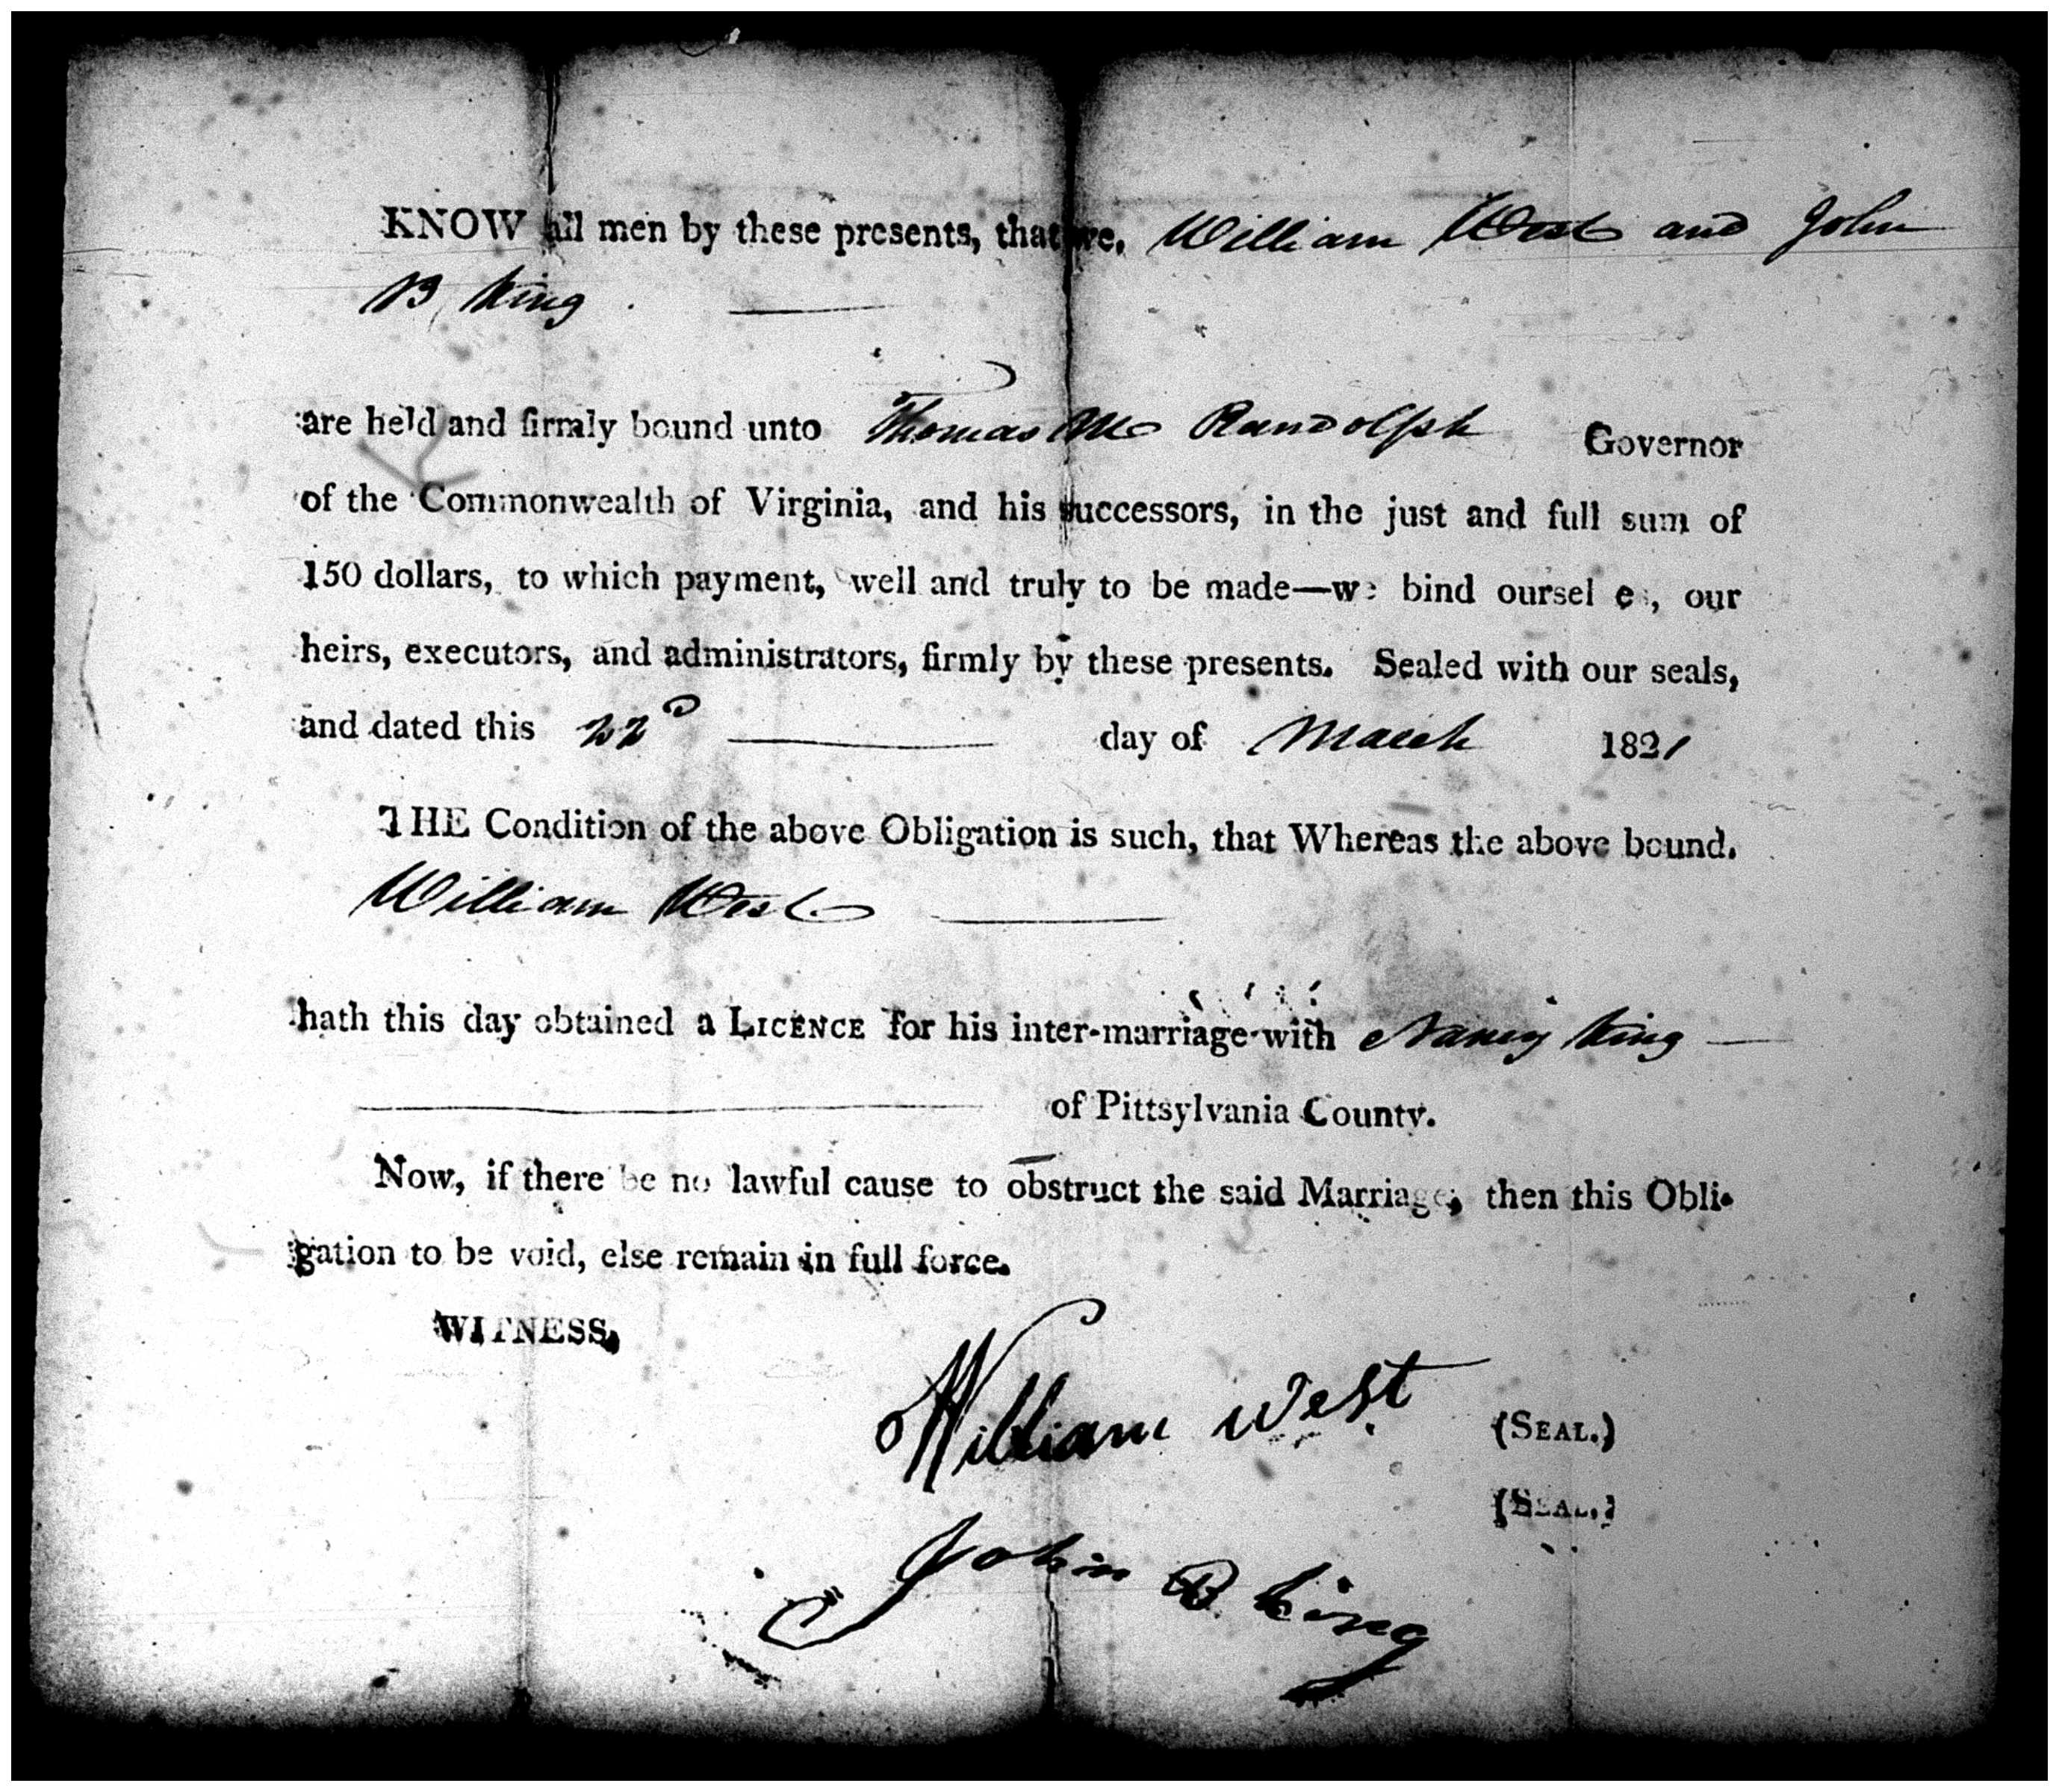 KNOW all men by these presents, that we, William West and John
B King.
are held and firmly bound unto Thomas M Randolph Governor
of the Commonwealth of Virginia, and his successors, in the just and full sum of
150 dollars, to which payment, well and truly to be made—we bind oursel es, our
heirs, executors, and administrators, firmly by these presents. Sealed with our seals,
and dated this 22d day of March 1821
THE Condition of the above Obligation is such, that Whereas the above bound.
William West
hath this day obtained a LICENCE for his inter-marriage with Nancy King
of Pittsylvania County.
Now, if there be no lawful cause to obstruct the said Marriage, then this Obli-
gation to be void, else remain in full force.
WITNESS,
William West (SEAL.)
(SEAL.)
John B King